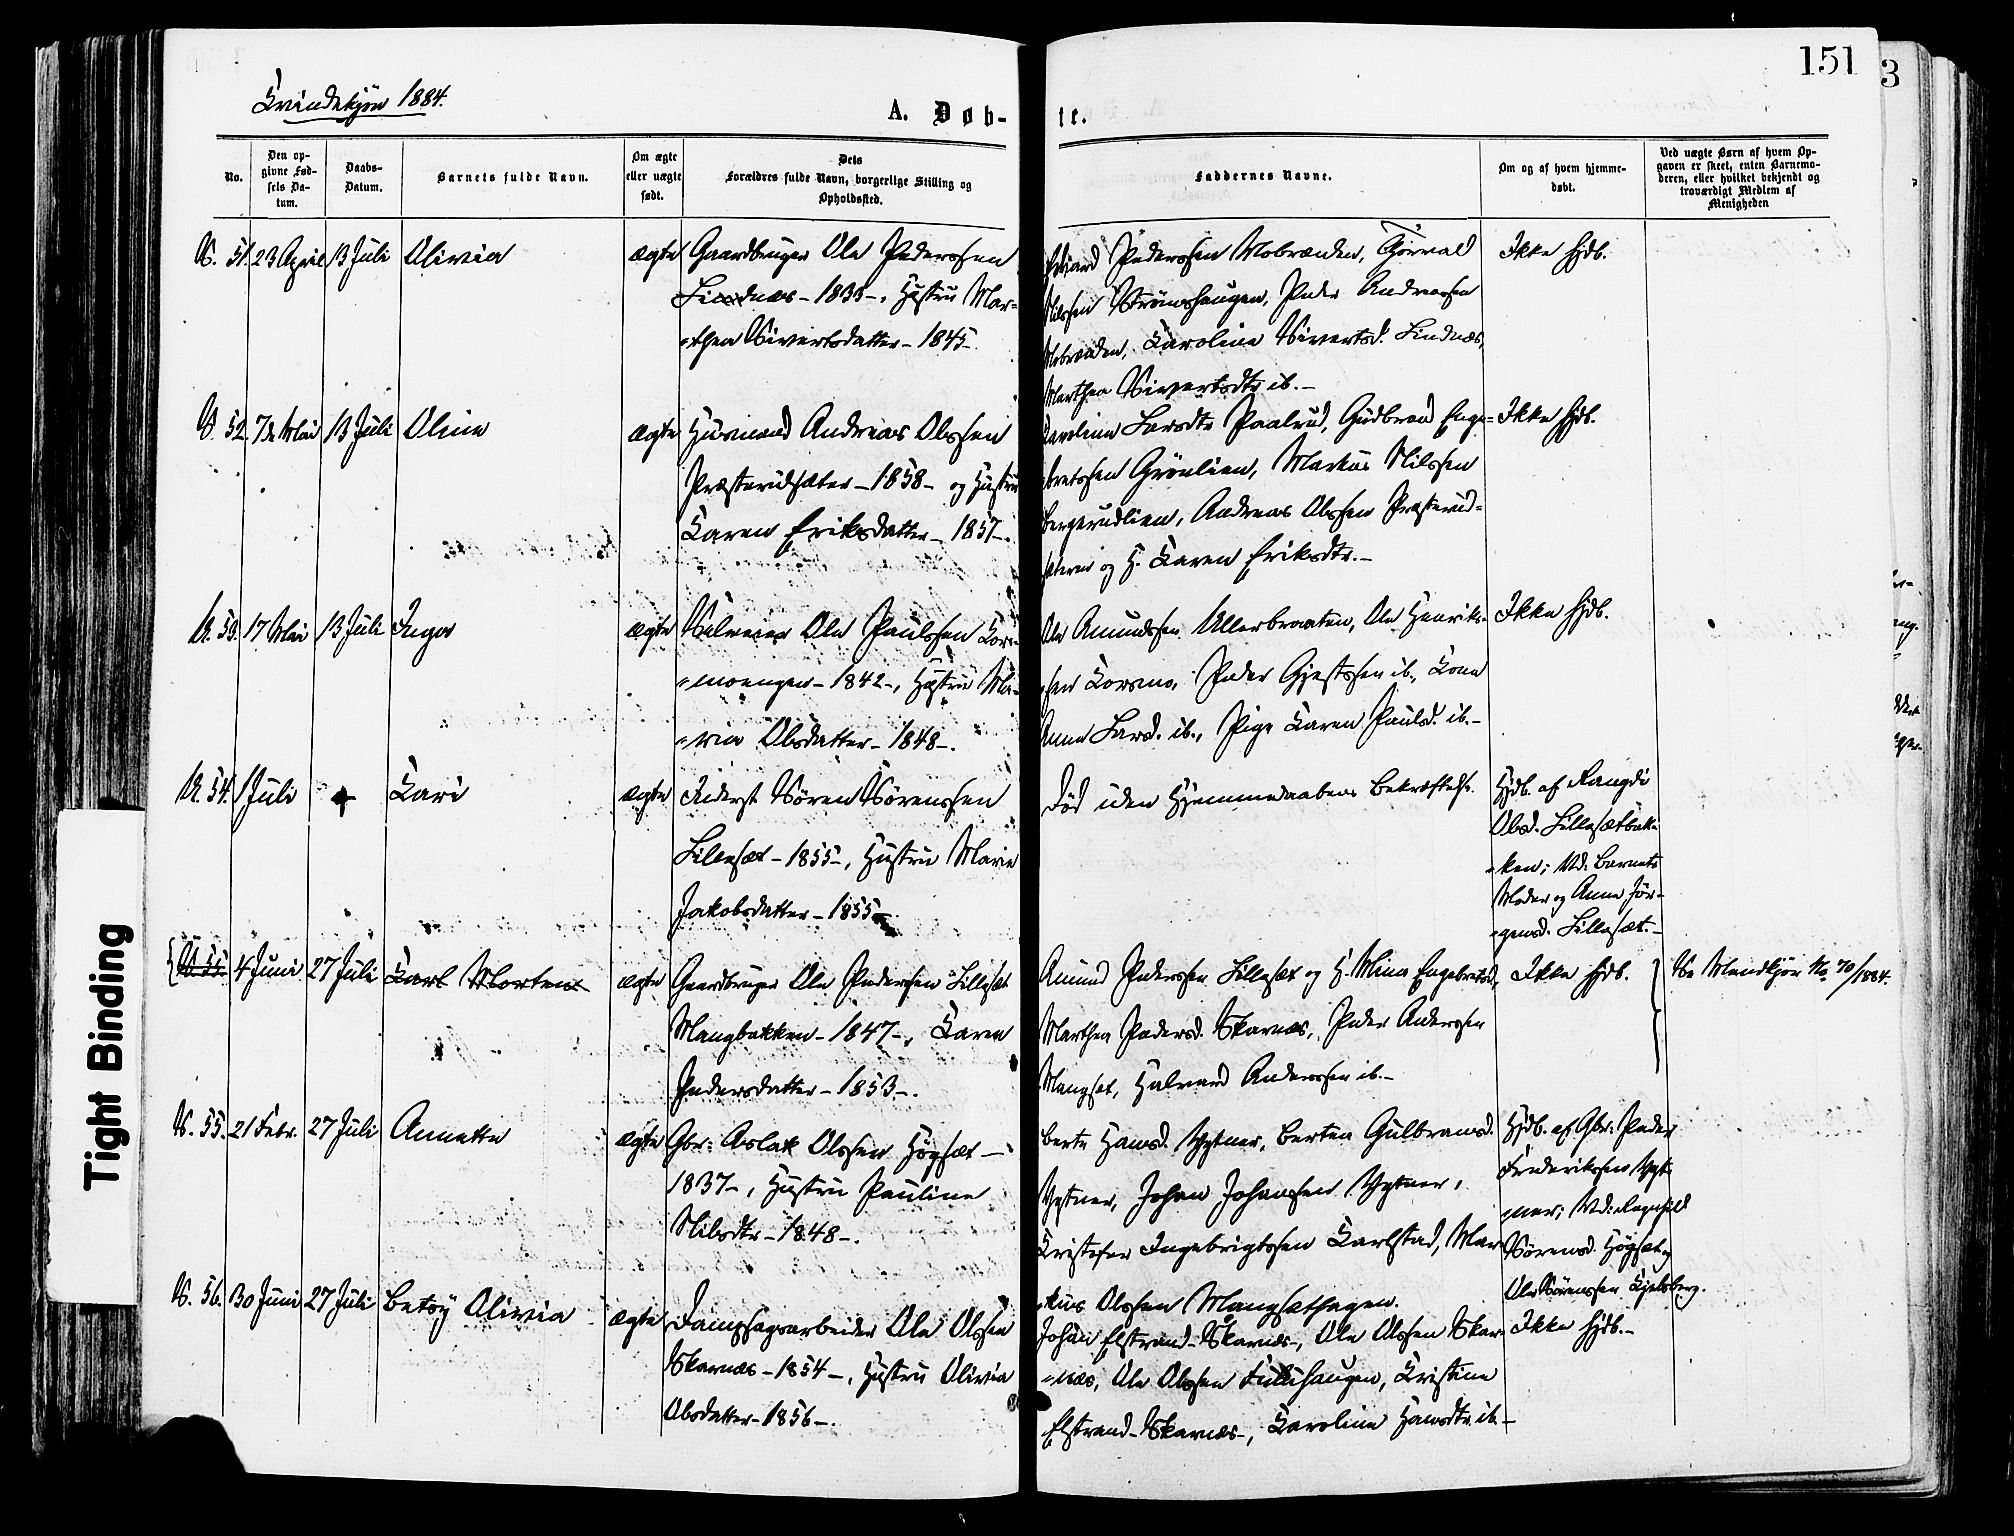 151
3
Kvindekjøn 1884.
A. Døb-
te.
No.
Den op-
givne Fød-
sels Da-
tum.
Daabs-
Datum.
Barnets fulde Navn.
Om ægte
eller uægte
født.
Dets
Forældres fulde Navn, borgerlige Stilling og
Opholdssted.
Faddernes Navne.
Om og af hvem hjemme-
døbt.
Ved uægte Børn af hvem Op-
gaven er skeet, enten Barnemo-
deren, eller hvilket bekjendt og
troværdigt Medlem af
Menigheden
S. 51. 23 April 13 Juli Olivia ægte Gaardbruger Ole Pederssen
Lindnæs - 1833 -, Hustru Mar-
"then Sivertsdatter - 1845 -
Pederssen Mobrænden, Thorvald
Nilssen Strømshaugen, Peder Andreassen
Mobrænden, Karoline Sivertsd. Lindnæs,
Marthea Sivertsdtr ib. -
Ikke hjdb.
S. 52. 7de Mai 13 Juli Oline ægte Husmand Andreas Olssen
Præsterudsæter - 1858 - og Hustru
Karen Eriksdatter - 1857 -.
Karoline Larsdtr Paalrud, Gudbrand Enge-
bretssen Grønlien, Markus Nilssen
Bergerudlien, Andreas Olssen Præsterud-
sæteren og H. Karen Eriksdtr. -
Ikke hjdb.
U. 53. 17 Mai 13 Juli Inga ægte Selveier Ole Paulssen Kors-
"moengen - 1842 -, Hustru Ma-
"ria Olsdatter - 1848 -.
Ole Amundssen Ullerbraaten, Ole Henrik-
sen Korsmo, Peder Gjestssen ib., Kone
Anne Larsd. ib., Pige Karen Paulsd. ib. -
Ikke hjdb.
U. 54. 1 Juli Kari ægte Inderst Søren Sørenssen
Lillesæt - 1855 -, Hustru Marie
Jakobsdatter - 1855 -
Død uden Hjemmedaabens Bekræftelse.
Hjdb. af Rangdi
Olsd. Lillesætbak-
"ken; Vd: Barnets
Moder og Anne Jør-
"gensd. Lillesæt. -
S. 55. 4 Juni 27 Juli Karl Morten ægte Gaardbruger Ole Pederssen Lillesæt
Mangbakken - 1847 -, Karen
Pedersdatter - 1853 -.
Amund Pederssen Lillesæt og H. Mina Engebretsd.,
Marthea Pedersd. Skarnæs, Peder Anderssen
Mangset, Halvard Anderssen ib. -
Ikke hjdb.
Se Mandkjøn No 70/1884.
S. 55. 21 Febr. 27 Juli Annette ægte Gbr: Aslak Olssen Høgsæt -
1837 -, Hustru Pauline
Nilsdtr - 1848 -.
Berte Hansd. Ygtner, Berthea Gulbrandsd.
Ygtner, Johan Johanssen Ygtner,
Kristofer Ingebrigtssen Karlstad, Mar-
"kus Olssen Mangsæthagen.
Hjdb. af Gbr: Peder
Frederikssen Ygt-
"ner; Vd: Ragnhild
Sørensd. Høgsæt og
Ole Sørenssen Kjelsberg.
S. 56. 30 Juni 27 Juli Betsy Olivia ægte Dampsagsarbeider Ole Olssen
Skarnæs - 1854 -, Hustru Olivia
Olsdatter - 1856 -.
Johan Elstrand - Skarnæs -, Ole Olssen Skar-
"næs, Ole Olssen Fuluhaugen, Kristine
Elstrand - Skarnæs -, Karoline Hansdtr. ib. -
Ikke hjdb. -
Tight Binding